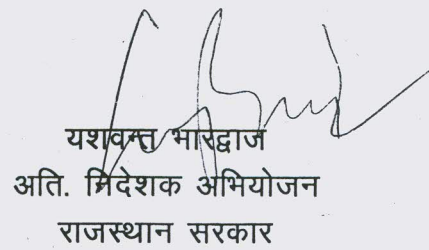 यशवन्त भारद्वाज
अति. निदेशक अभियोजन
राजस्थान सरकार